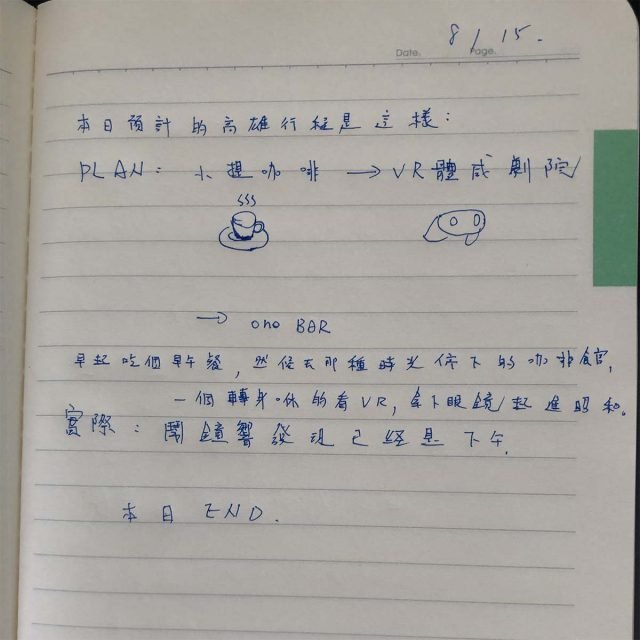 Date. Page.
8/15.
本日預計的高雄行程是這樣:
PLAN: 小堤咖啡 → VR體感劇院
→ one BAR
早起吃個早午餐, 然後去那種時光停下的咖啡館,
一個轉身休的看VR, 拿下眼鏡走進昭和。
實際: 鬧鐘響發現已經是下午.
本日END.